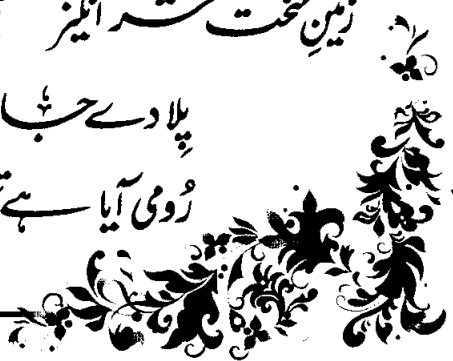 زمینِ سخت انگیز
پِلا دے
رُومی آیا ہے